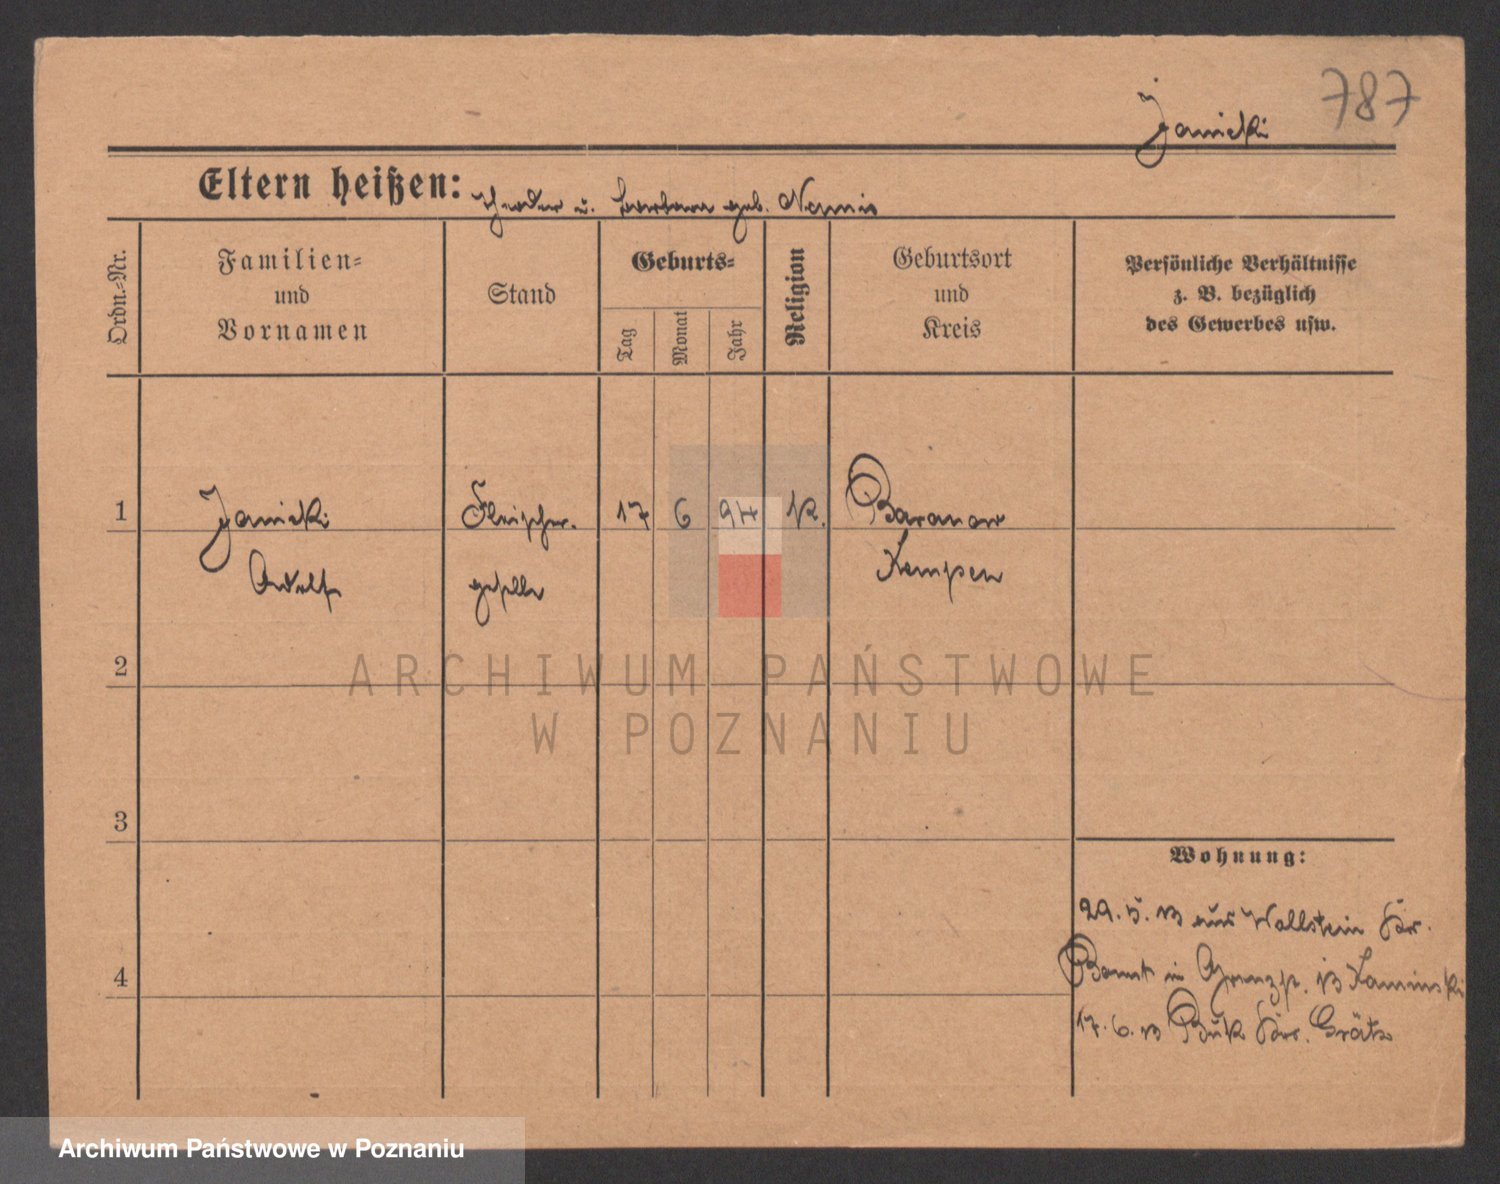 787
Janicki
Eltern heißen: Theodor u. Barbara geb.
Ordn.-Nr.
Familien-
und
Vornamen
Stand
Geburts-
Tag
Monat
Jahr
Religion
Geburtsort
und
Kreis
Persönliche Verhältnisse
z. B. bezüglich
des Gewerbes usw.
1 Janicki Fleischer- 17 6 94 K. Baranow
Adolf geselle Kempen
2
3
4
Wohnung:
29. 5. 13 aus Wollstein Kr.
Bomst in Grenzstr. 13 Kaminski
17. 6. 13 Buk Kr. Grätz
ARCHIWUM PAŃSTWOWE
W POZNANIU
Archiwum Państwowe w Poznaniu